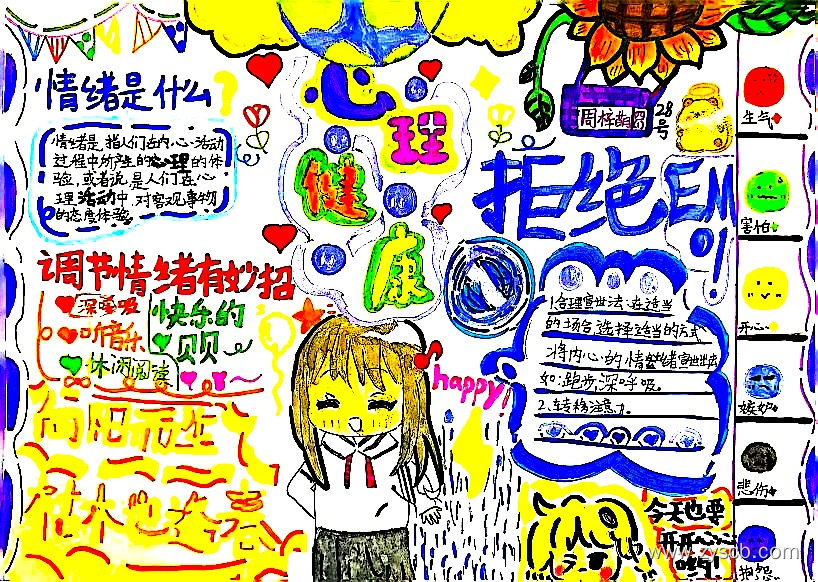 情绪是什么?
情绪是,指人们在内心活动
过程中所产生的心理的体
验,或者说,是人们在心
理活动中,对客观事物
的态度体验。
心理健康
28号
拒绝EMO!
调节情绪有妙招
深呼吸
听音乐
休闲阅读
快乐的
贝贝
向阳而生
happy!
1.合理宣世法:在适当
的场合选择适当的方式
将内心的情
如:跑步,深呼吸。
2.转移注意力。
生气
害怕
开心
嫉妒
悲伤
抱怨
今天也要
开开心心
哟!
www.zyscb.com